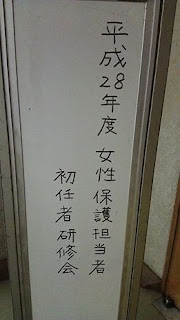 平成28年度 女性保護担当者
初任者研修会